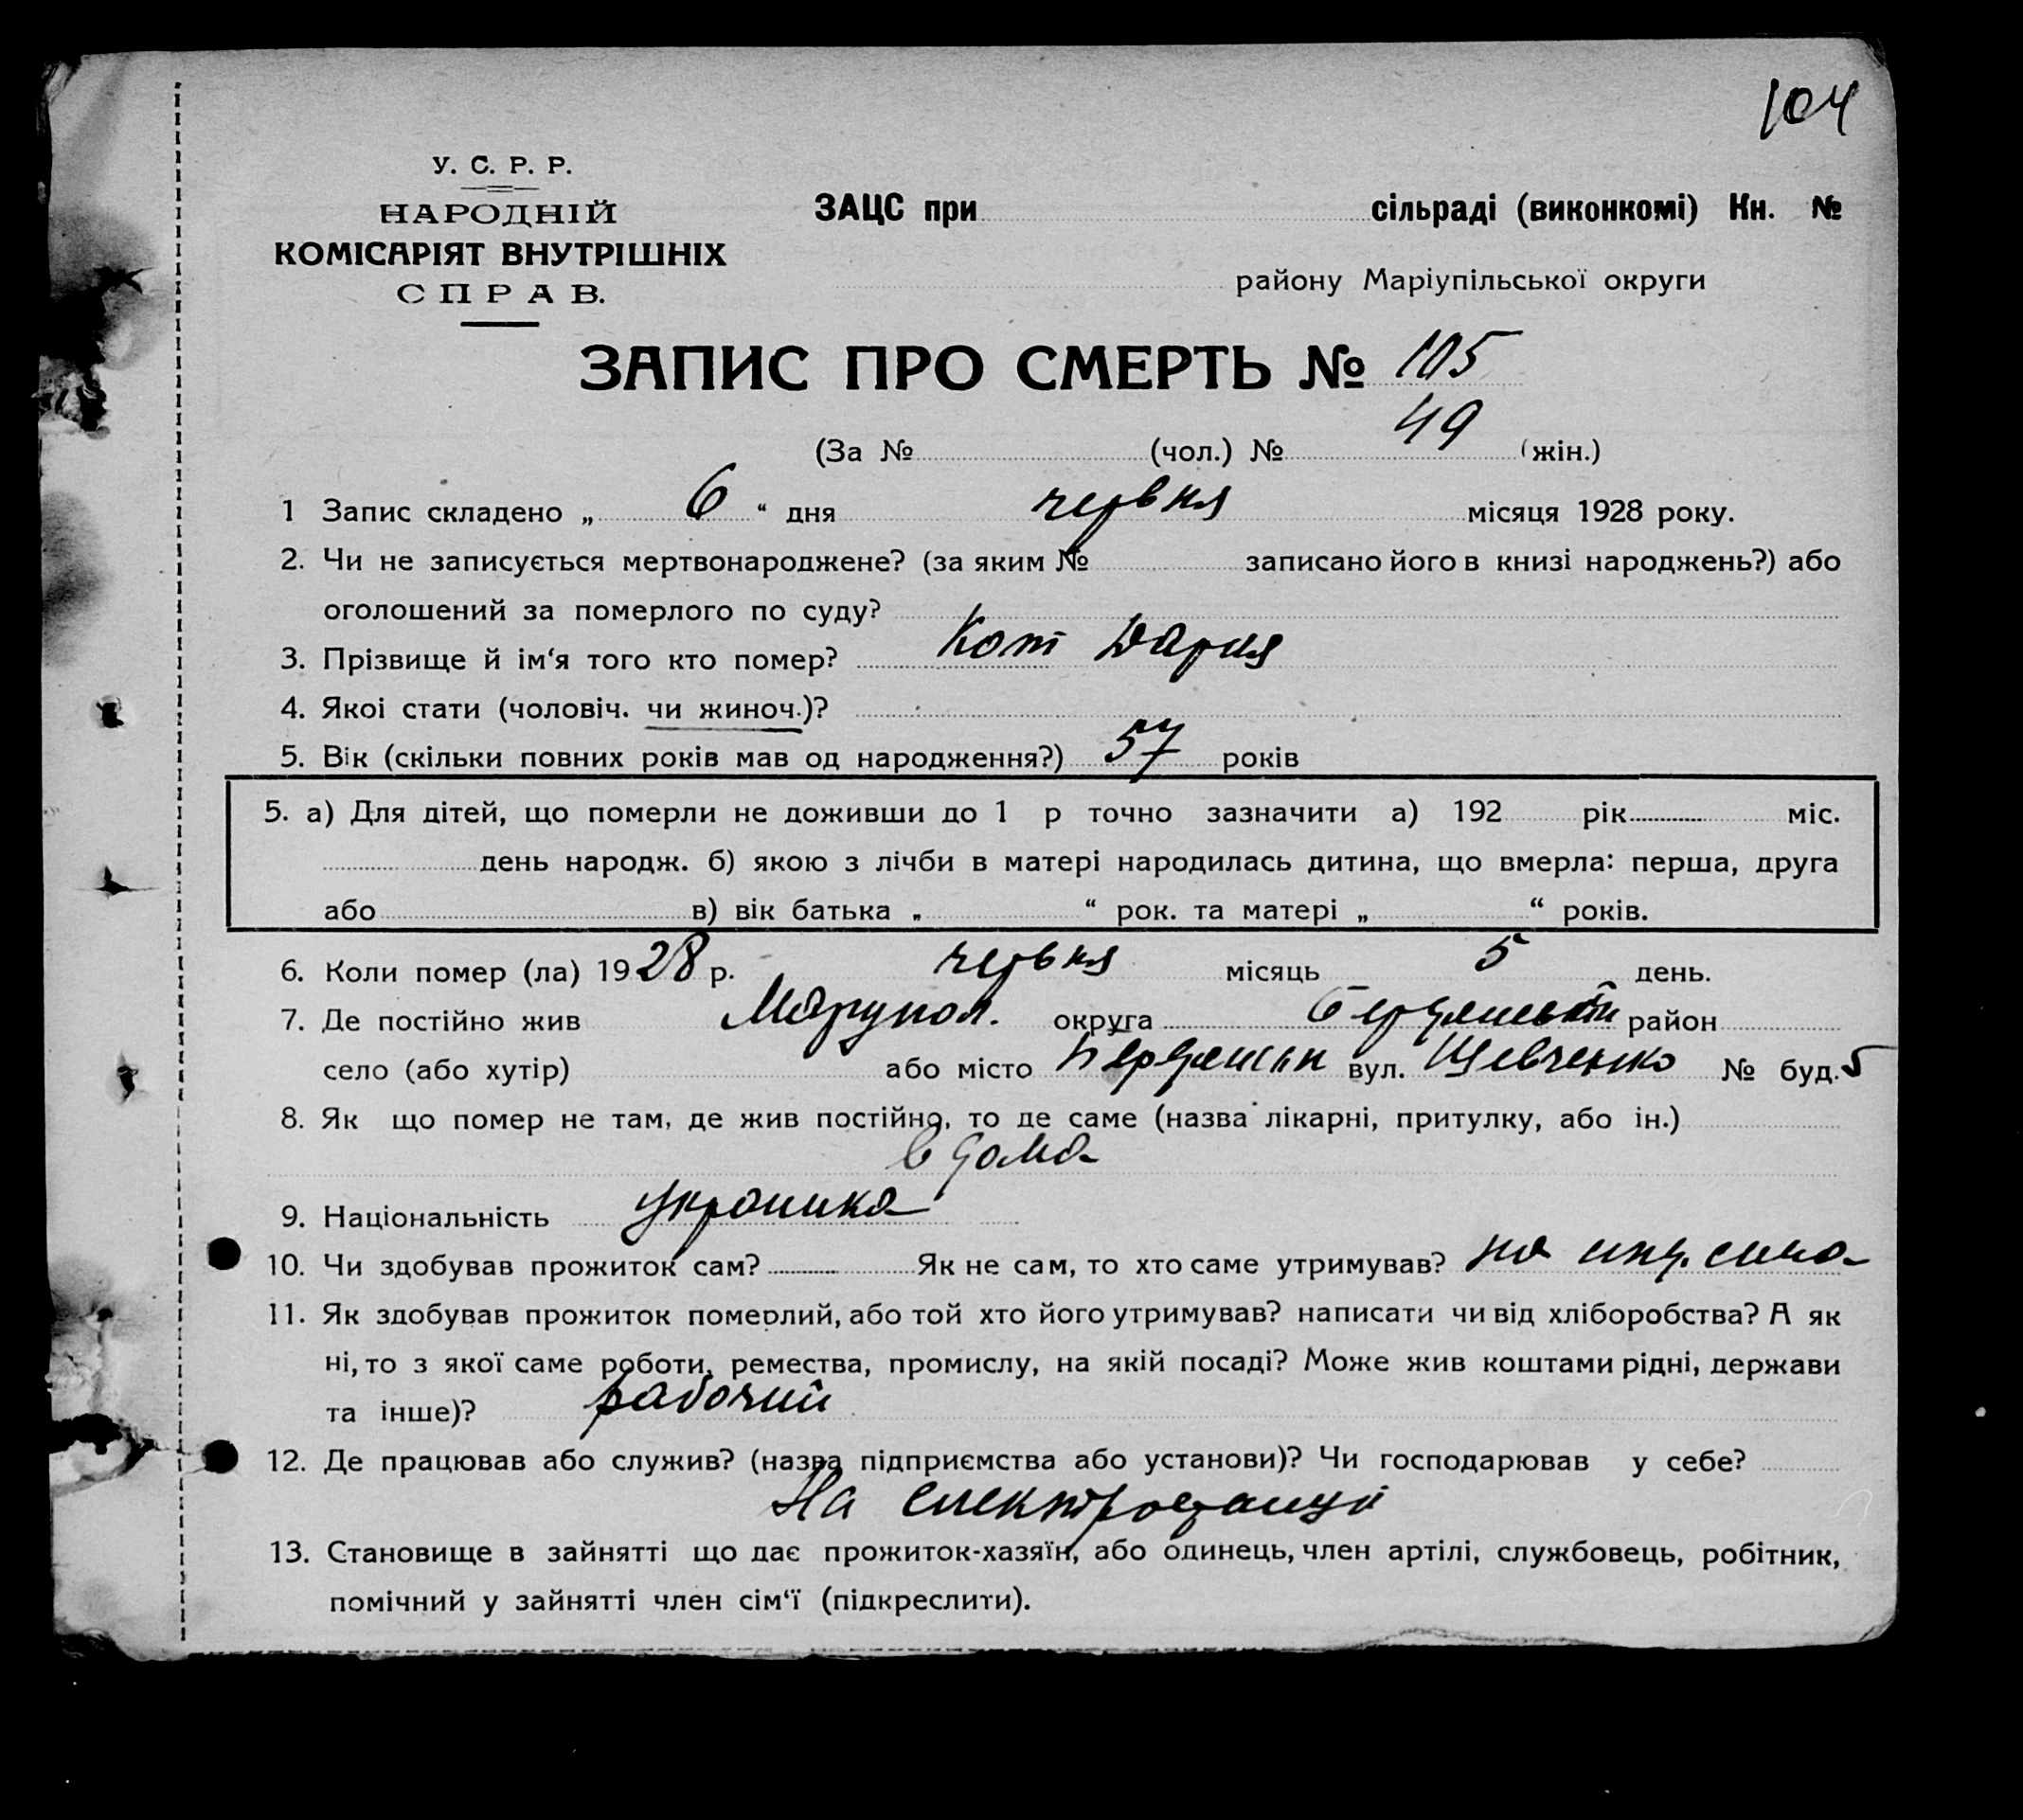 104
У. С. Р. Р.
НАРОДНІЙ
КОМІСАРІЯТ ВНУТРІШНІХ
СПРАВ.
ЗАЦС при сільраді (виконкомі) Кн. №
району Маріупільської округи
ЗАПИС ПРО СМЕРТЬ № 105
(За № (чол.) № 49 (жін.)
1 Запис складено „ 6 “ дня червня місяця 1928 року.
2. Чи не записується мертвонароджене? (за яким № записано його в книзі народжень?) або
оголошений за померлого по суду?
3. Прізвище й ім‘я того кто помер? Кот Дария
4. Якоі стати (чоловіч. чи жиноч.)?
5. Вік (скільки повних років мав од народження?) 57 років
5. а) Для дітей, що померли не доживши до 1 р точно зазначити а) 192 рік міс.
день народж. б) якою з лічби в матері народилась дитина, що вмерла: перша, друга
або в) вік батька „ “ рок. та матері „ “ років.
6. Коли помер (ла) 1928 р. червня місяць 5 день.
7. Де постійно жив Марупол. округа район
село (або хутір) або місто Бердянськ вул. Шевченко № буд. 5
8. Як що помер не там, де жив постійно, то де саме (назва лікарні, притулку, або ін.)
в дома
9. Національність украинка
10. Чи здобував прожиток сам? Як не сам, то хто саме утримував? на ижд. сина
11. Як здобував прожиток померлий, або той хто його утримував? написати чи від хліборобства? А як
ні, то з якої саме роботи, ремества, промислу, на якій посаді? Може жив коштами рідні, держави
та інше)? рабочий
12. Де працював або служив? (назва підприємства або установи)? Чи господарював у себе?
На електростанції
13. Становище в зайнятті що дає прожиток-хазяїн, або одинець, член артілі, службовець, робітник,
помічний у зайнятті член сім‘ї (підкреслити).